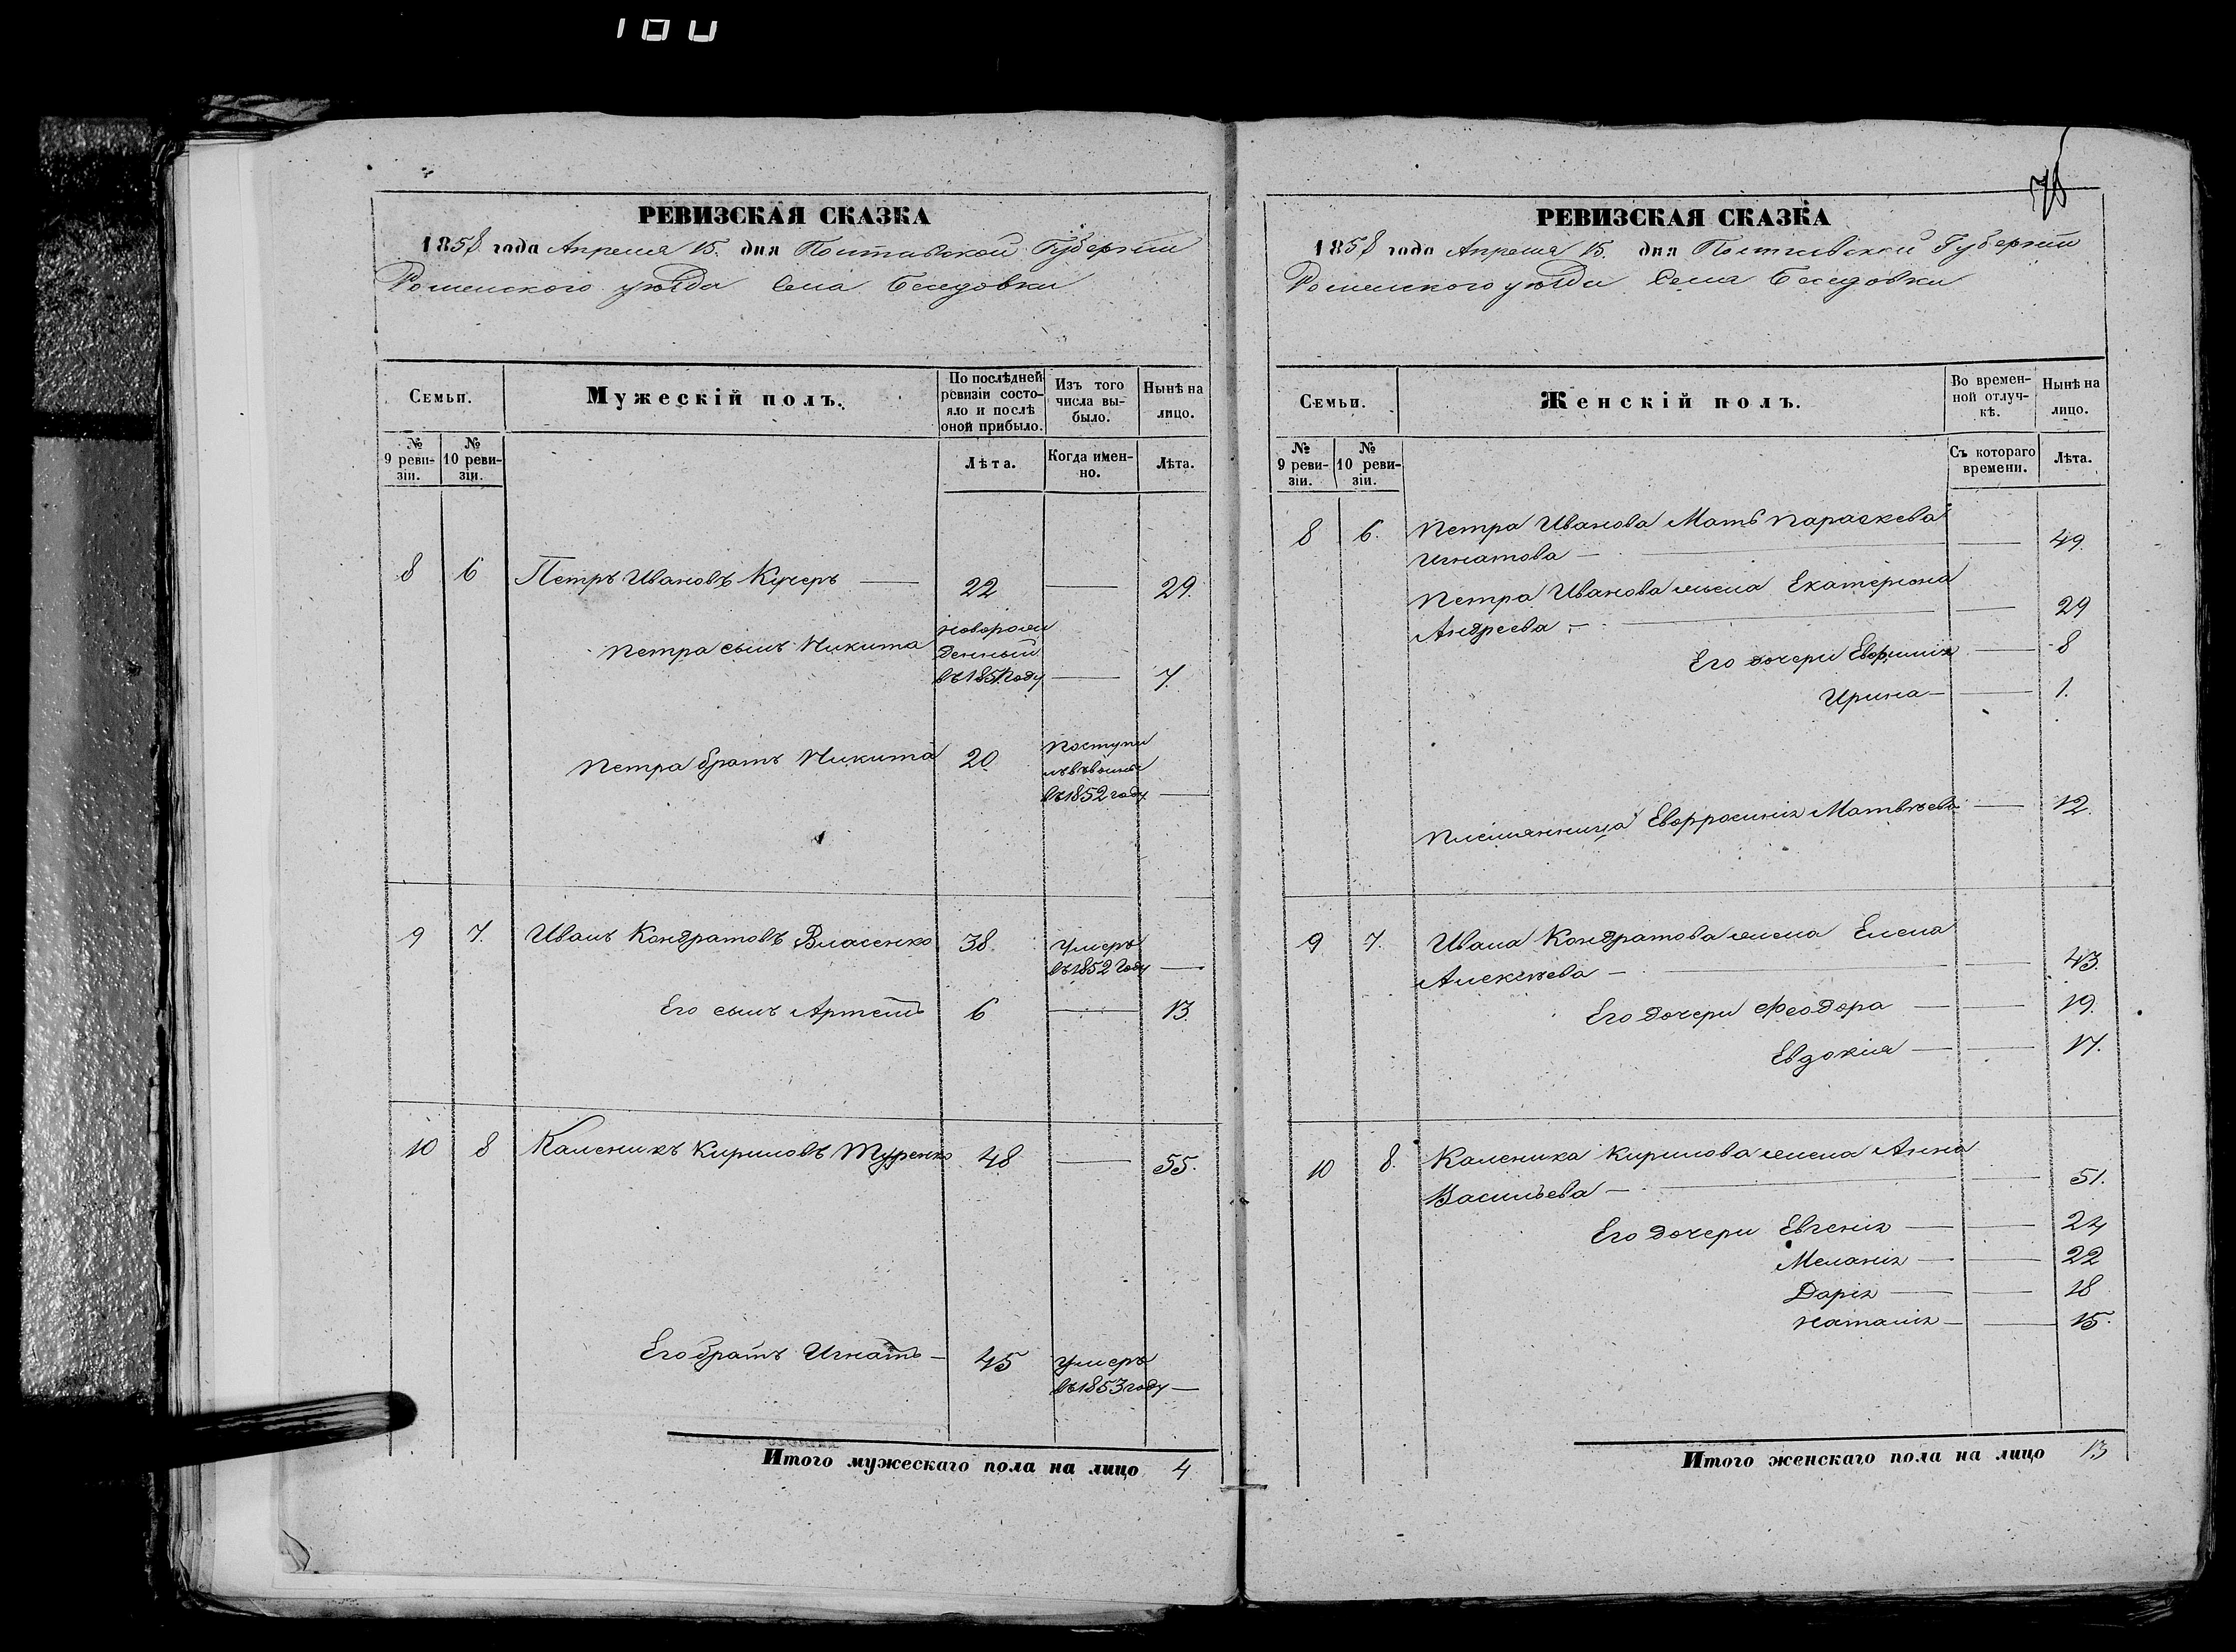 100
РЕВИЗСКАЯ СКАЗКА
1858 года Апреля 15. дня Полтавской Губерніи
Роменского уѣзда Села Беседовки
Семьи.
Мужескій полъ.
По послѣдней ревизіи состояло и послѣ оной прибыло.
Изъ того числа выбыло.
Нынѣ на лицо.
№ 9 ревизіи.
№ 10 ревизіи.
Лѣта.
Когда именно.
Лѣта.
8 6 Петръ Ивановъ Кучеръ — 22 — 29.
Петра сынъ Никита новорожденный въ 1851 году — 7.
Петра братъ Никита 20 поступилъ въ въ 1852 году —
9 7. Иванъ Кондратовъ Власенко 38. умеръ въ 1852 году —
Его сынъ Артемъ 6 — 13.
10 8 Каленикъ Кириловъ 48 — 55.
Его братъ Игнатъ — 45 умеръ въ 1853 году —
Итого мужескаго пола на лицо 4
РЕВИЗСКАЯ СКАЗКА
1858 года Апреля 15. дня Полтавской Губерніи
Роменского уѣзда Села Беседовки
Семьи.
Женскій полъ.
Во временной отлучкѣ.
Нынѣ на лицо.
№ 9 ревизіи.
№ 10 ревизіи.
Съ котораго времени.
Лѣта.
8 6. Петра Иванова Мать Параскева
Игнатова — — 49.
Петра Иванова жена Екатерина
Андреева — — 29
Его дочери Евфимія — 8
Ирина — — 1.
Племянница Евфросинія Матвѣева — 12.
9 7. Ивана Кондратова жена Елена
Алексѣева — — 43.
Его дочери Феодора — — 19.
Евдокія — — 17.
10 8. Каленика Кирилова жена Анна
Васильева — — 51.
Его дочери Евгенія — — 24
Меланія — — 22
Дарія — — 18
Наталія — — 15.
Итого женскаго пола на лицо 13